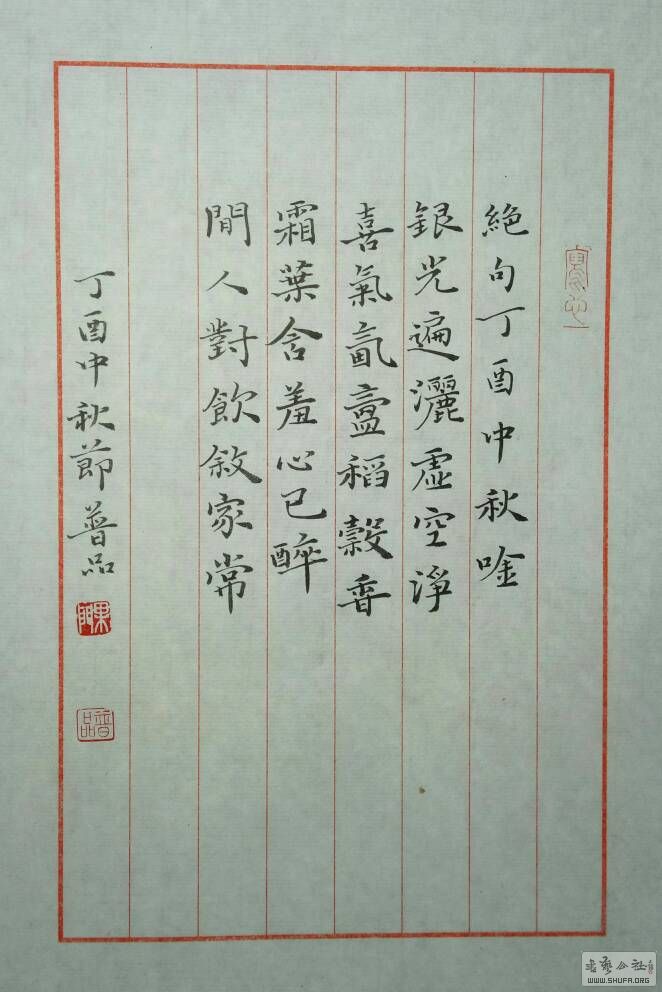 絕句丁酉中秋唫
銀光遍灑虛空淨
喜氣氤氳稻穀香
霜葉含羞心已醉
閒人對飲敘家常
丁酉中秋節普品
普品
書藝公社
WWW.SHUFA.ORG